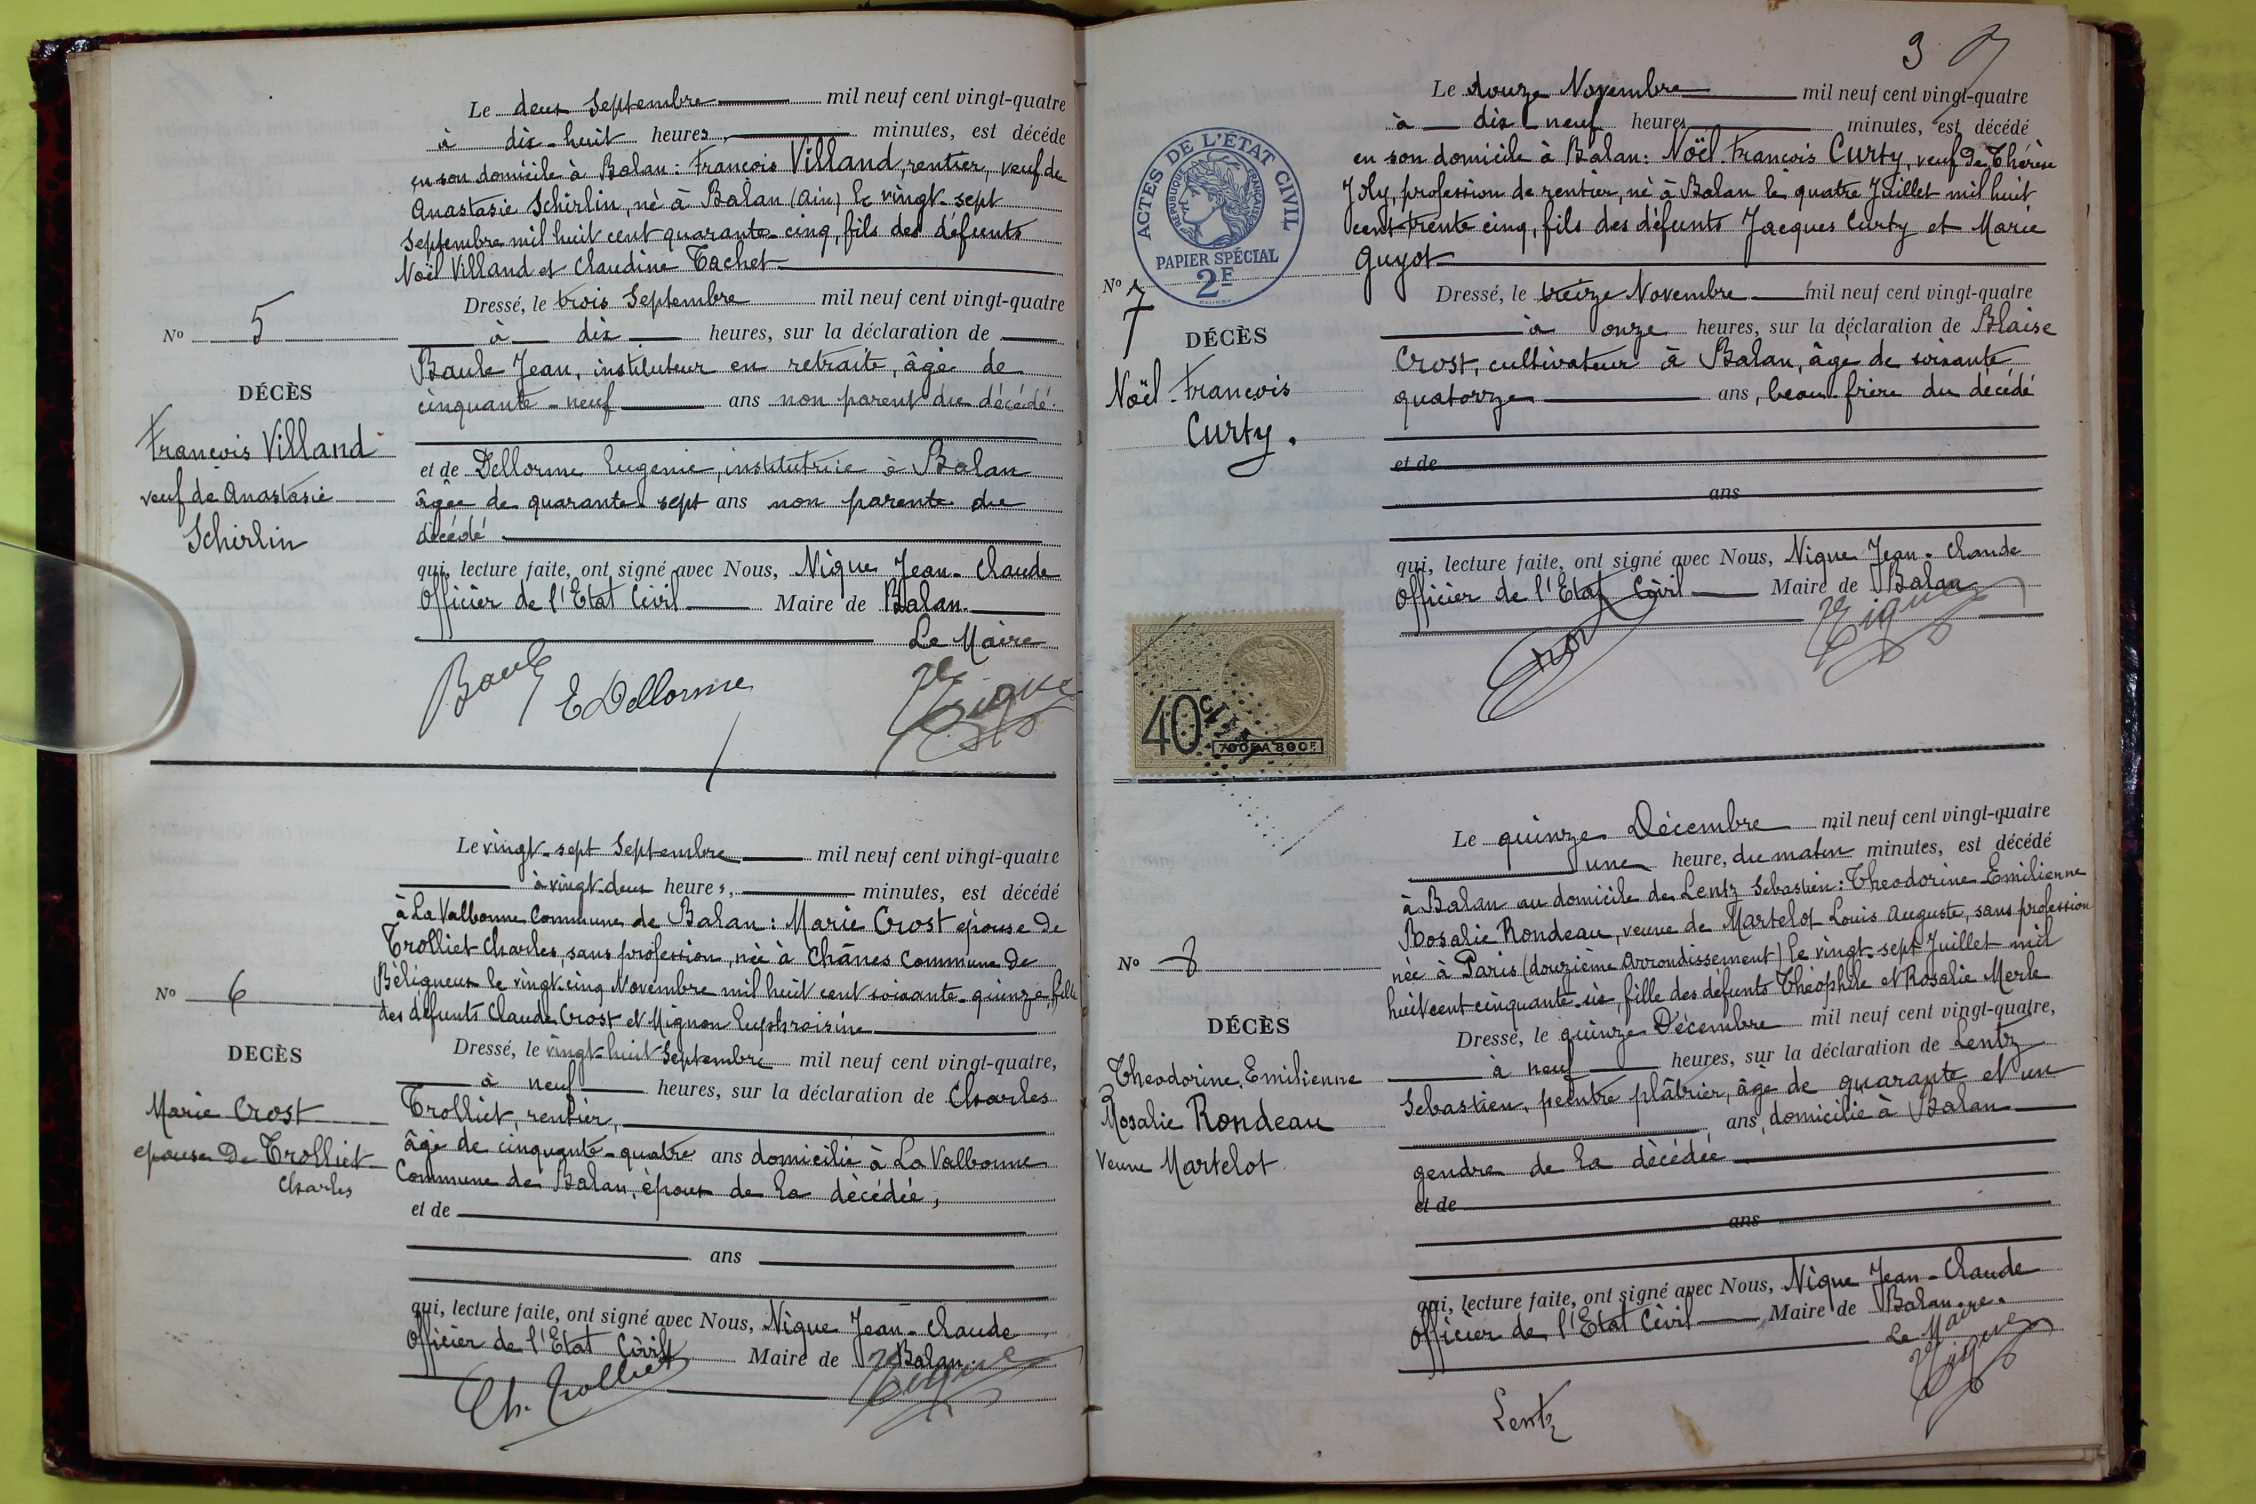 Le deux Septembre mil neuf cent vingt-quatre
à dix-huit heures, minutes, est décédé
en son domicile à Balan: François Villand, rentier, veuf de
Anastasie Schirlin, né à Balan (Ain) le vingt-sept
Septembre mil huit cent quarante-cinq, fils des défunts
Noël Villand et Claudine Tachet
Dressé, le trois Septembre mil neuf cent vingt-quatre
Nº 5
à dix heures, sur la déclaration de
Baule Jean, instituteur en retraite, âgé de
DÉCÈS
cinquante-neuf ans non parent du décédé.
François Villand
veuf de Anastasie
Schirlin
et de Dellorme Eugenie, institutrice à Balan
âgée de quarante-sept ans non parente du
décédé
qui, lecture faite, ont signé avec Nous, Nique Jean-Claude
Officier de l'Etat Civil Maire de Balan.
Le Maire
Baule E Dellorme Nique
Le vingt-sept Septembre mil neuf cent vingt-quatre
à vingt-deux heures, minutes, est décédé
à La Valbonne Commune de Balan: Marie Crost épouse de
Trolliet Charles, sans profession, née à Chânes Commune de
Béligneux le vingt-cinq Novembre mil huit cent soixante-quinze, fille
des défunts Claude Crost et Mignon Euphroisine
Nº 6
Dressé, le vingt-huit Septembre mil neuf cent vingt-quatre,
DECÈS
à neuf heures, sur la déclaration de Charles
Trolliet, rentier,
Marie Crost
épouse de Trolliet
Charles
âgé de cinquante-quatre ans domicilié à La Valbonne
Commune de Balan, époux de la décédée,
et de
ans
qui, lecture faite, ont signé avec Nous, Nique Jean-Claude
Officier de l'Etat Civil Maire de Balan.
Ch. Trolliet Nique
3
Le douze Novembre mil neuf cent vingt-quatre
à dix-neuf heures minutes, est décédé
en son domicile à Balan: Noël François Curty, veuf de Thérèse
Joly, profession de rentier, né à Balan le quatre Juillet mil huit
cent trente cinq, fils des défunts Jacques Curty et Marie
Guyot
ACTES DE L'ÉTAT CIVIL
RÉPUBLIQUE FRANÇAISE
PAPIER SPÉCIAL
2F
Nº 7
Dressé, le treize Novembre mil neuf cent vingt-quatre
DÉCÈS
à onze heures, sur la déclaration de Blaise
Crost, cultivateur à Balan, âgé de soixante
Noël-François
Curty.
quatorze ans, beau-frère du décédé
et de
ans
qui, lecture faite, ont signé avec Nous, Nique Jean-Claude
Officier de l'Etat Civil Maire de Balan
Crost Nique
40
Le quinze Décembre mil neuf cent vingt-quatre
une heure, du matin minutes, est décédé
à Balan au domicile de Lentz Sebastien: Theodorine Emilienne
Rosalie Rondeau, veuve de Martelot Louis Auguste, sans profession
née à Paris (douzième arrondissement) le vingt-sept Juillet mil
huit cent cinquante-six, fille des défunts Théophile et Rosalie Merle
Nº 8
Dressé, le quinze Décembre mil neuf cent vingt-quatre,
DÉCÈS
à neuf heures, sur la déclaration de Lentz
Theodorine, Emilienne
Rosalie Rondeau
Veuve Martelot
Sebastien, peintre plâtrier, âgé de quarante et un
ans, domicilié à Balan
gendre de la décédée
et de
ans
qui, lecture faite, ont signé avec Nous, Nique Jean-Claude
Officier de l'Etat Civil Maire de Balan.
Le Maire.
Nique
Lentz